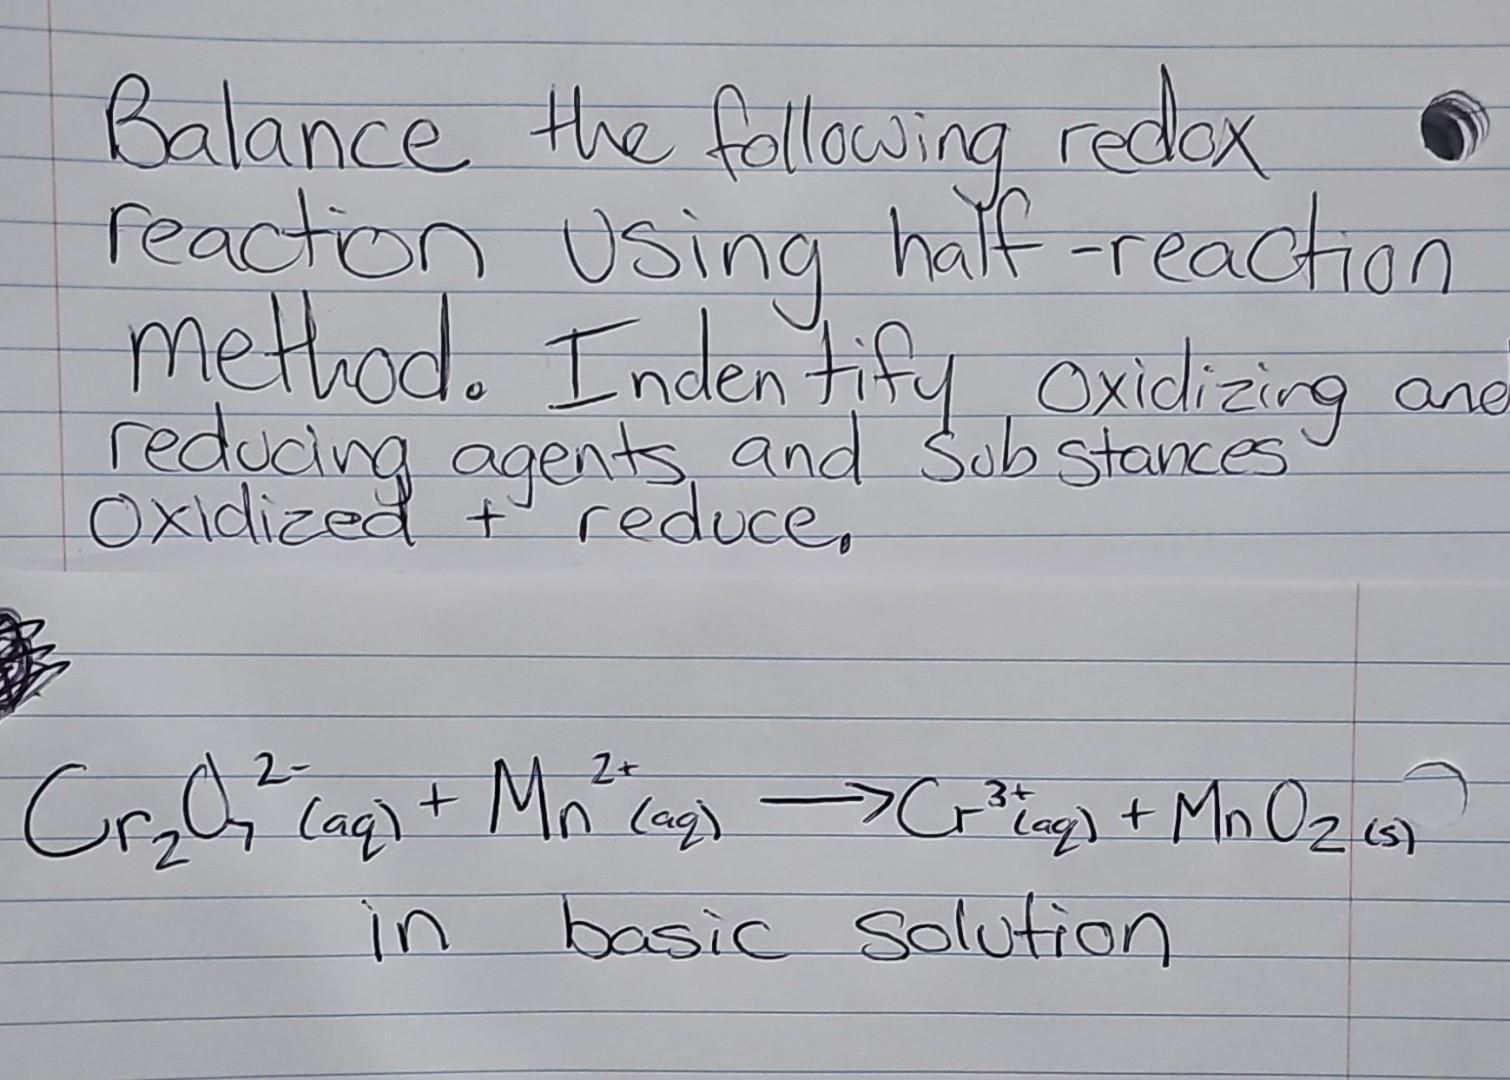 Balance the following redox
reaction using half-reaction
method. Indentify oxidizing and
reducing agents, and substances
oxidized + reduce.
Cr₂O₇²⁻(aq) + Mn²⁺(aq) → Cr³⁺(aq) + MnO₂(s)
in basic solution